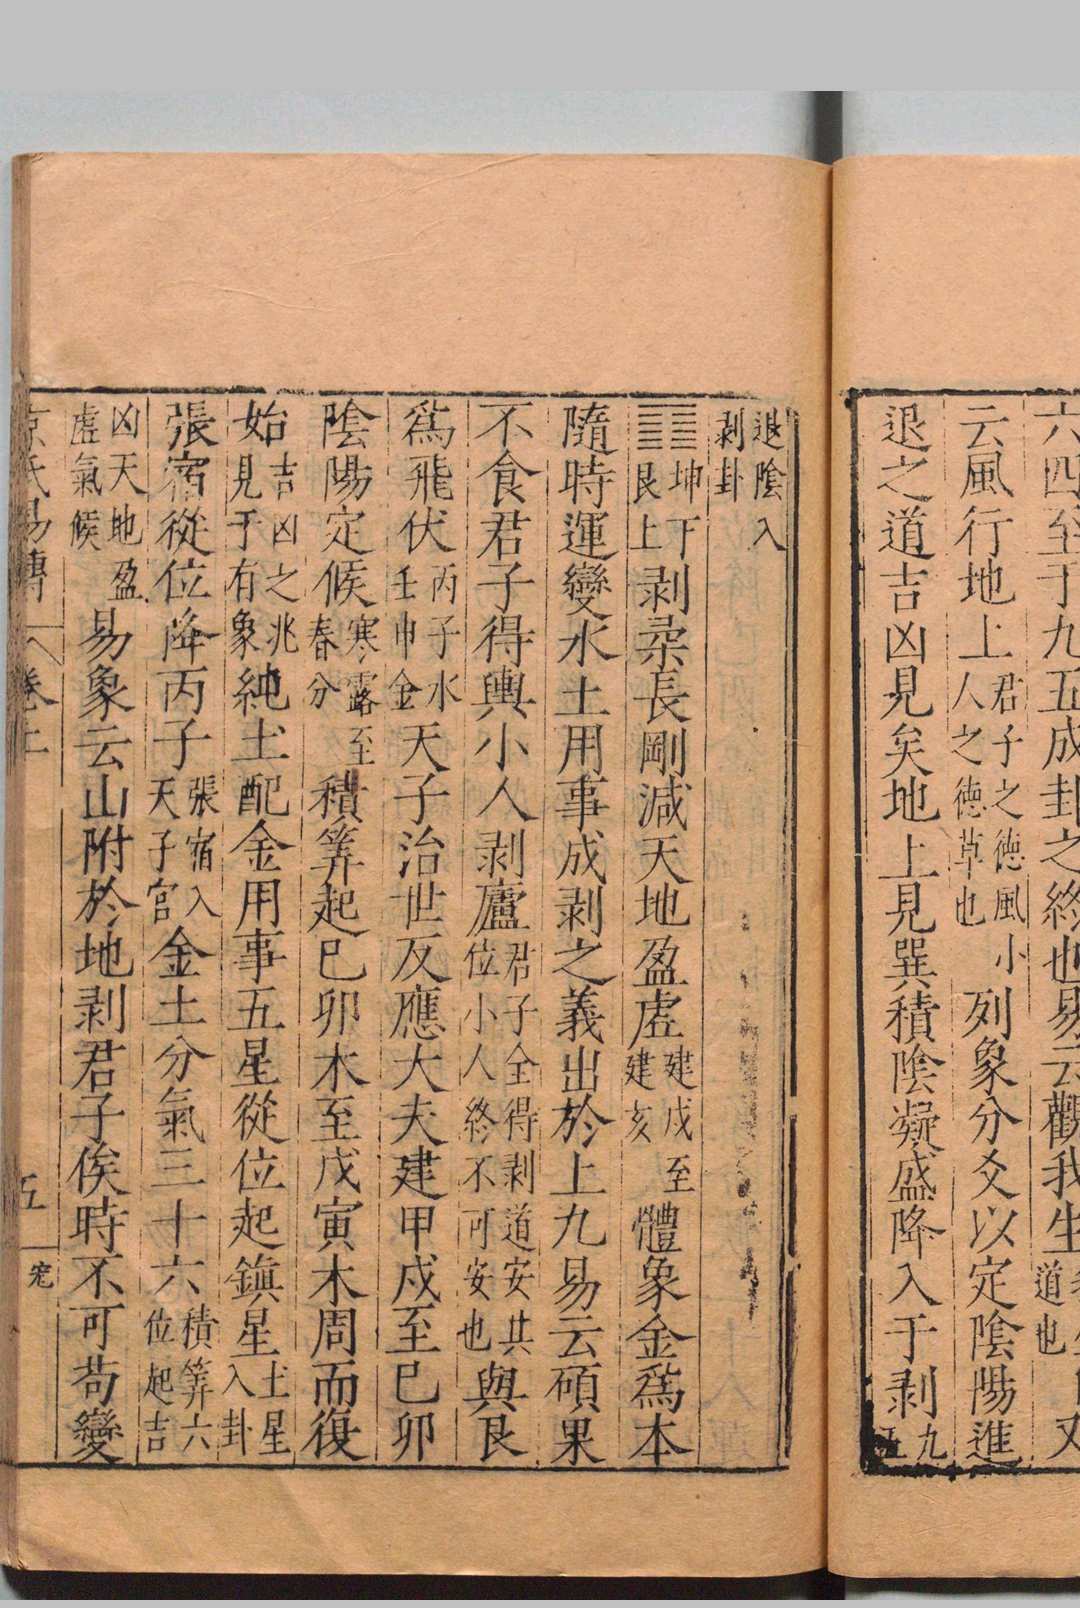 六四至于九五成卦之終也易云觀我生道也又
云風行地上君子之德風小人之德草也列象分爻以定陰陽進
退之道吉凶見矣地上見巽積陰凝盛降入于剥九五
退陰入剥卦
䷖坤下艮上剥柔長剛減天地盈虛建戌至建亥體象金爲本
隨時運變水土用事成剥之義出於上九易云碩果
不食君子得輿小人剥廬君子全得剥道安其位小人終不可安也與艮
爲飛伏丙子水壬申金天子治世反應大夫建甲戍至巳卯
陰陽定候寒露至春分積筭起巳卯木至戊寅木周而復
始吉凶之兆見于有象純土配金用事五星從位起鎮星土星入卦
張宿從位降丙子張宿入天子宮金土分氣三十六積筭六位起吉
凶天地盈虛氣候易象云山附於地剥君子俟時不可苟變
京氏易傳 卷上 五